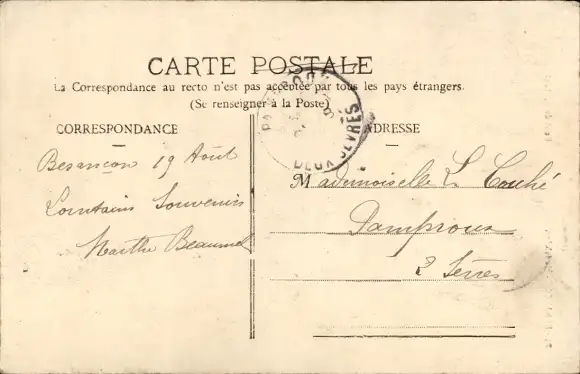 CARTE POSTALE
La Correspondance au recto n'est pas acceptée par tous les pays étrangers.
(Se renseigner à la Poste)
CORRESPONDANCE
ADRESSE
DEUX SÈVRES
Besançon 19 Août
Lointains Souvenirs
Marthe Beaumel
Mademoiselle L Couhé
Pamproux
2 Sèvres